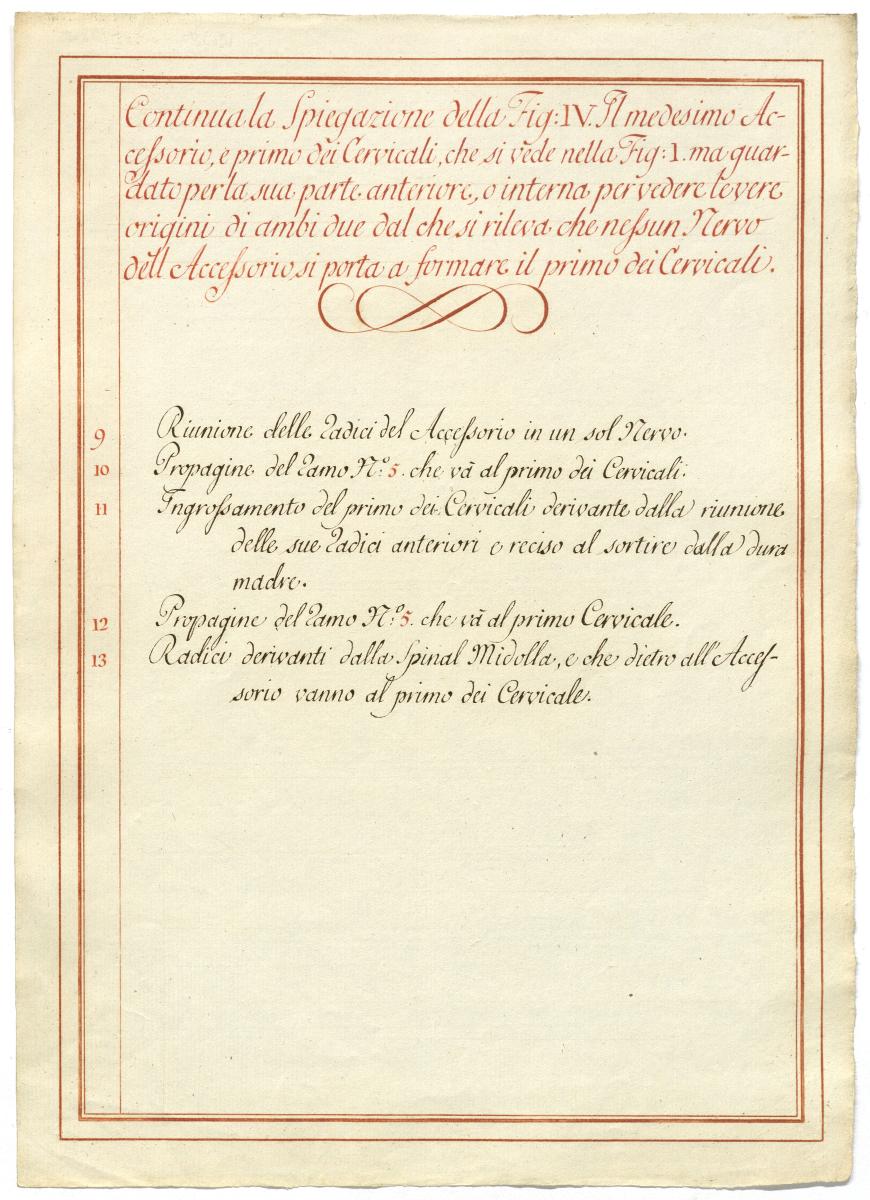 Continua la Spiegazione della Fig: IV. Il medesimo Ac-
cessorio, e primo dei Cervicali, che si vede nella Fig: 1. ma guar-
dato per la sua parte anteriore, o interna per vedere le vere
origini di ambi due dal che si rileva che nessun Nervo
dell Accessorio, si porta a formare il primo dei Cervicali.
9 Riunione delle Radici del Accessorio in un sol Nervo.
10 Propagine del Ramo N.º 5. che và al primo dei Cervicali.
11 Ingrossamento del primo dei Cervicali derivante dalla riunione
delle sue Radici anteriori e reciso al sortire dalla dura
madre.
12 Propagine del Ramo N.º 5. che và al primo Cervicale.
13 Radici derivanti dalla Spinal Midolla, e che dietro all'Acces-
sorio vanno al primo dei Cervicale.